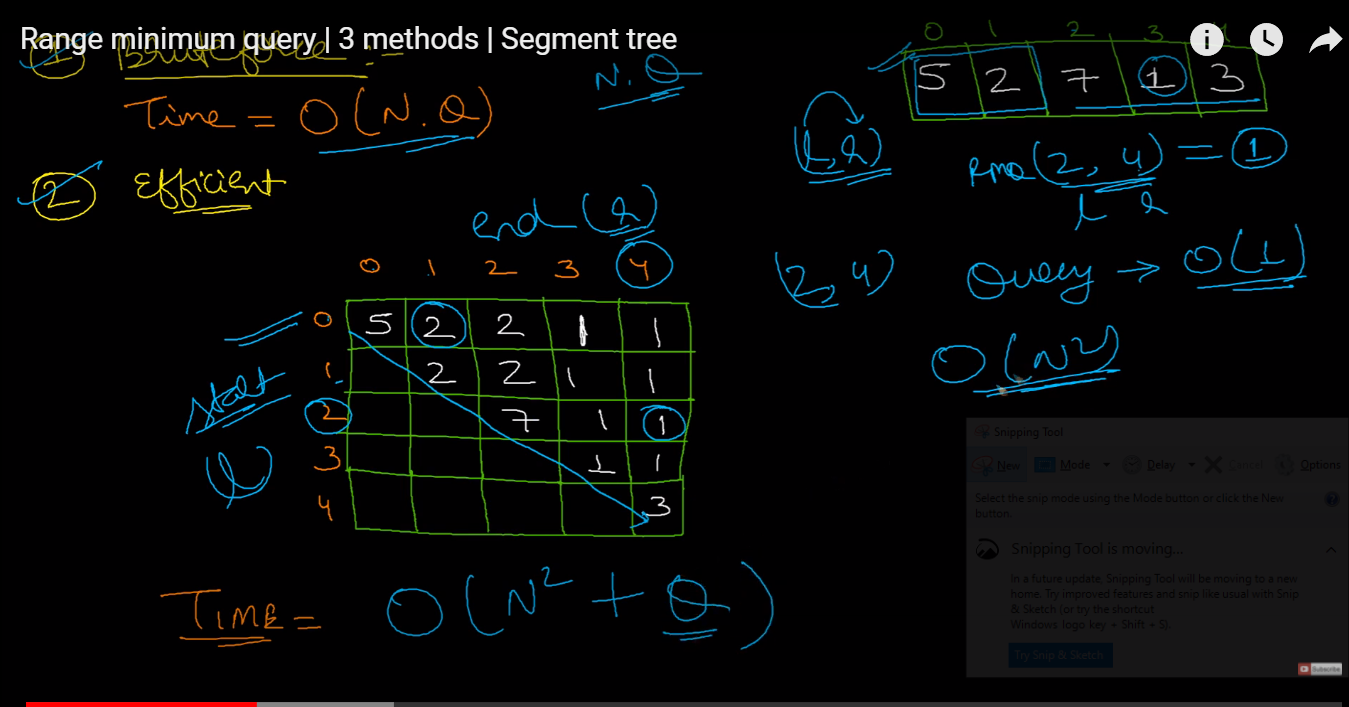 Range minimum query | 3 methods | Segment tree
1 Bruteforce :-
N.Q
Time = O(N.Q)
2 Efficient
0 1 2 3 4
5 2 7 1 3
(l,r)
RMQ(2, 4) = 1
l r
(2, 4)
Query → O(1)
O(N²)
end (r)
0 1 2 3 4
0 5 2 2 1 1
1 2 2 1 1
2 7 1 1
3 1 1
4 3
start
(l)
TIME = O(N² + Q)
Snipping Tool
New Mode Delay Cancel Options
Select the snip mode using the Mode button or click the New
button.
Snipping Tool is moving...
In a future update, Snipping Tool will be moving to a new
home. Try improved features and snip like usual with Snip
& Sketch (or try the shortcut
Windows logo key + Shift + S).
Try Snip & Sketch
Subscribe